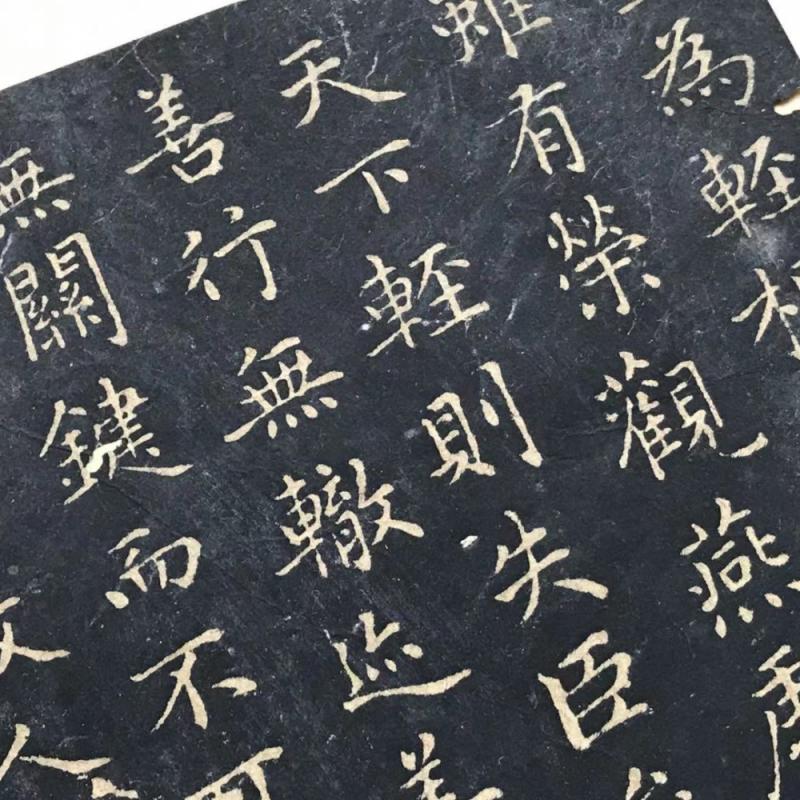 為輕根
雖有榮觀燕處
天下輕則失臣
善行無轍迹善
無關鍵而不可